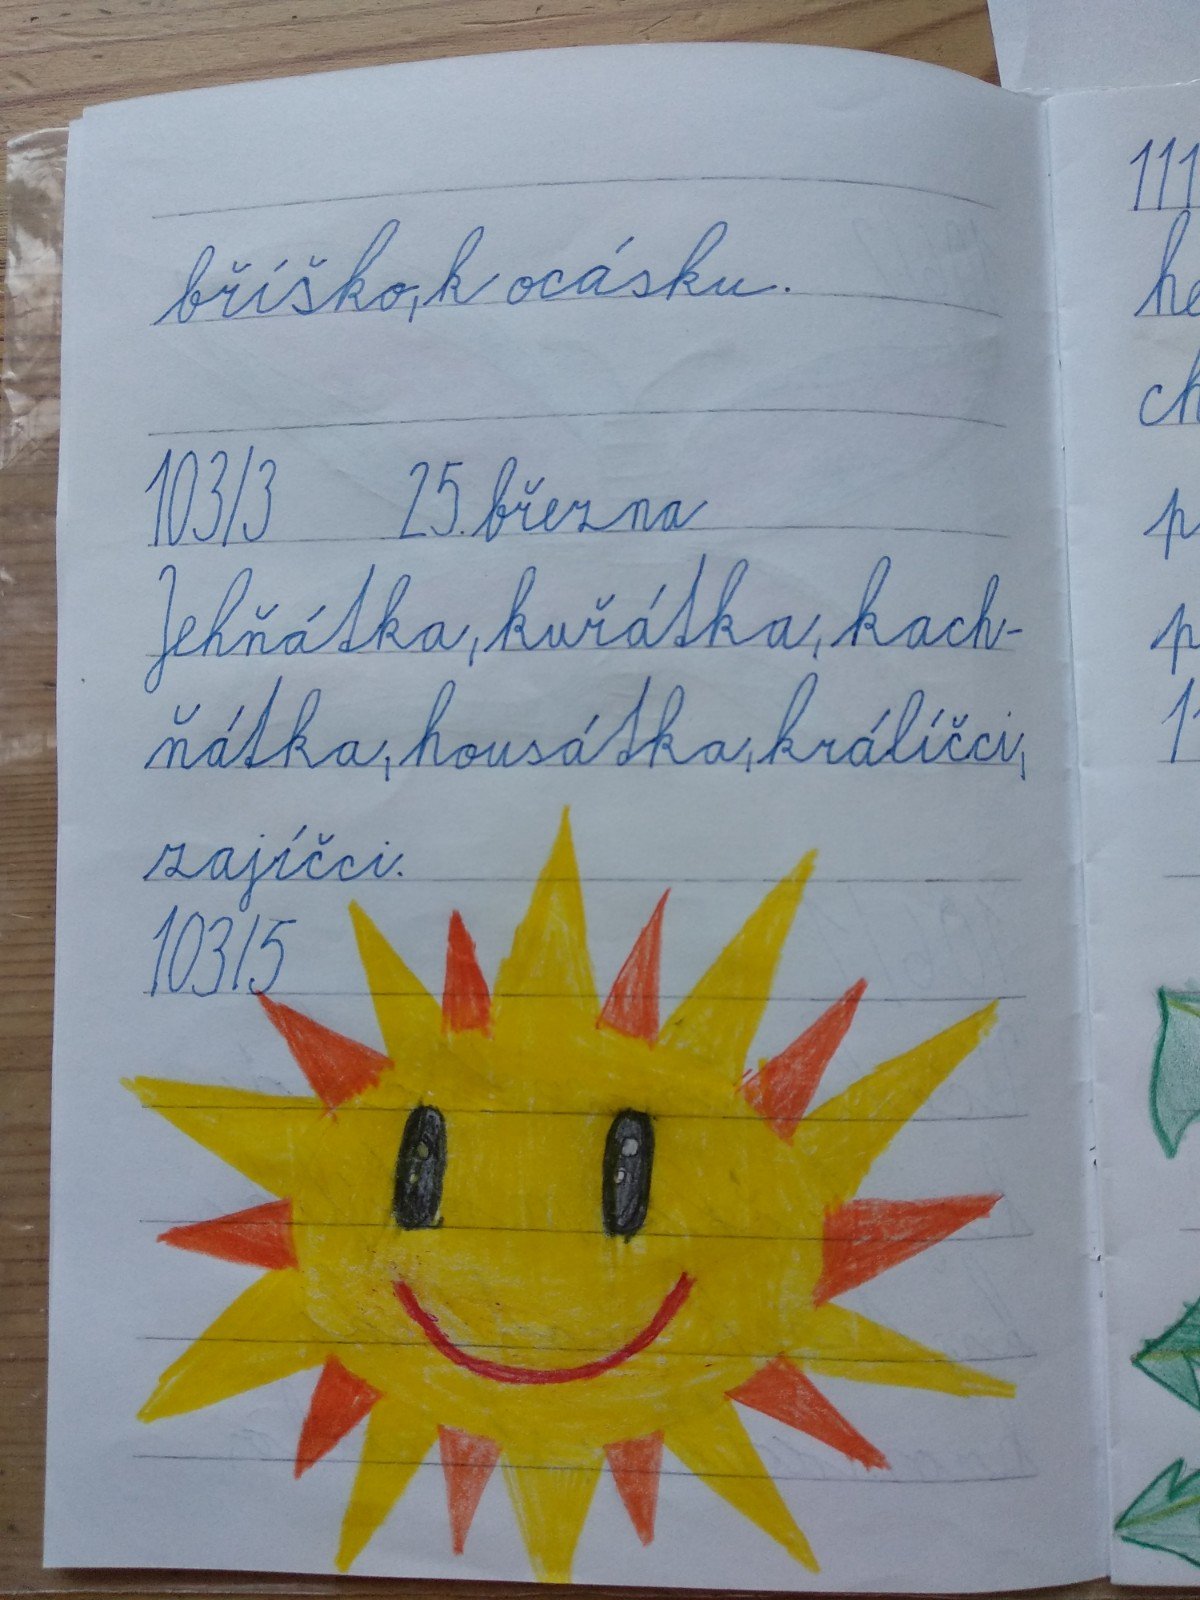 bříško, k ocásku.
103/3 25. března
Jehňátka, kuřátka, kach-
ňátka, housátka, králíčci,
zajíčci.
103/5
111
he
ch
p
p